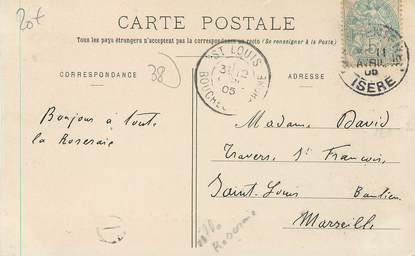 20f
CARTE POSTALE
Tous les pays étrangers n'acceptent pas la correspondance au recto (Se renseigner à la Poste)
CORRESPONDANCE
38
ADRESSE
ST LOUIS
31 12
05
BOUCHES RHONE
11
AVRIL
05
ISÈRE
Bonjour à toute
la Roseraie
Madame David
Travers. St François.
Saint-Louis Banlieu
Marseille
Roseraie